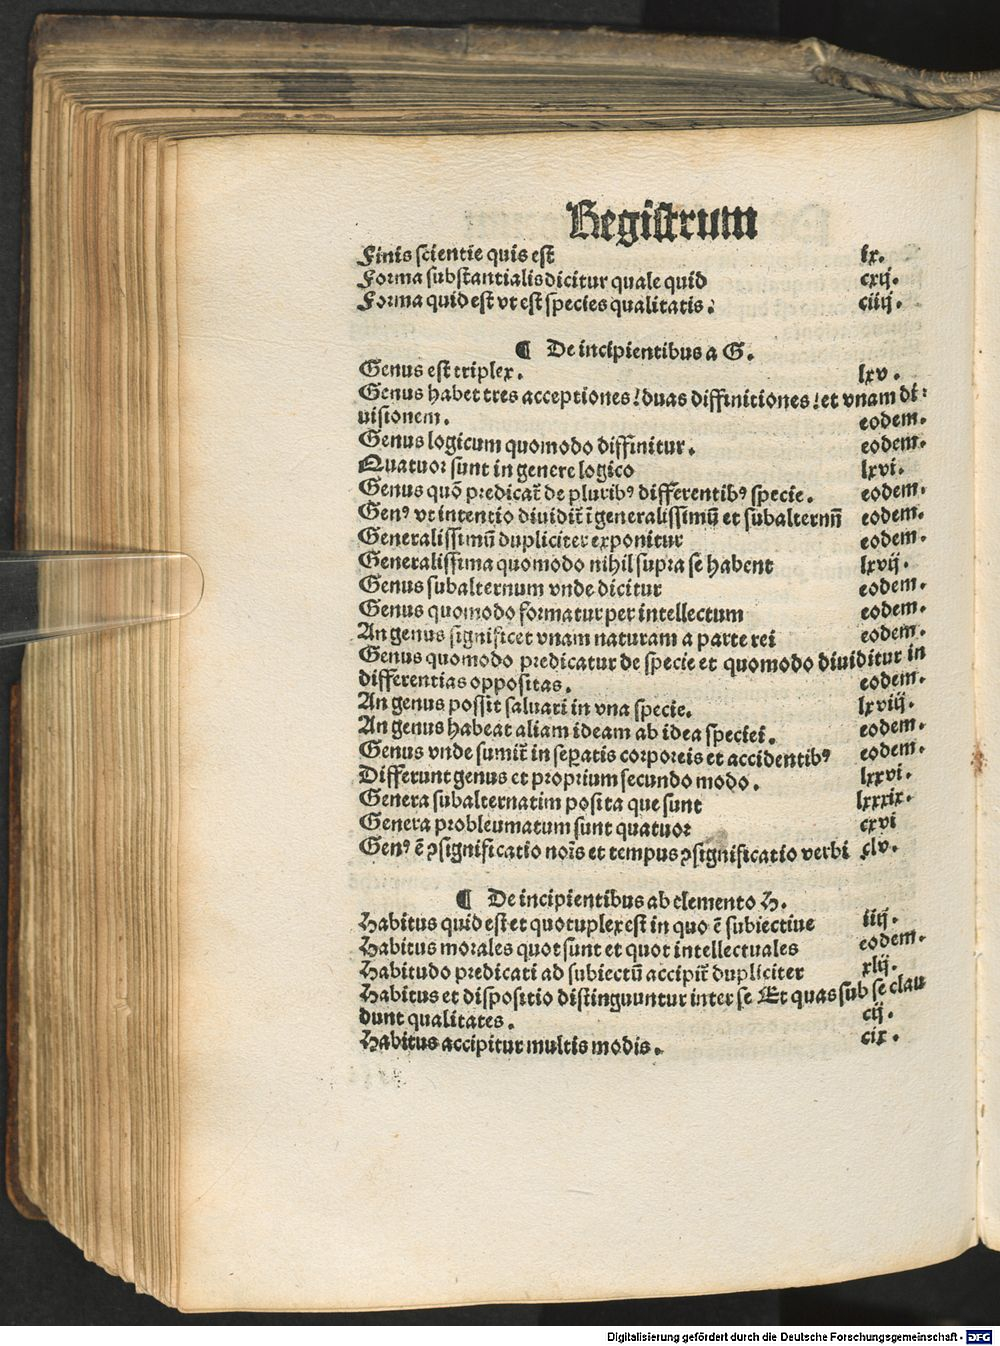 Registrum
Finis scientie quis est ix.
Forma substantialis dicitur quale quid cxij.
Forma quid est vt est species qualitatis. ciiij.
¶ De incipientibus a G.
Genus est triplex. lxv.
Genus habet tres acceptiones: duas diffinitiones: et vnam di-
uisionem. eodem.
Genus logicum quomodo diffinitur. eodem.
Quatuor sunt in genere logico lxvi.
Genus quō predicat̄ de pluribꝰ differentibꝰ specie. eodem.
Genꝰ vt intentio diuidit̄ ī generalissimū et subalternū eodem.
Generalissimū dupliciter exponitur eodem.
Generalissima quomodo nihil supra se habent lxvij.
Genus subalternum vnde dicitur eodem.
Genus quomodo formatur per intellectum eodem.
An genus significet vnam naturam a parte rei eodem.
Genus quomodo predicatur de specie et quomodo diuiditur in
differentias oppositas. eodem.
An genus possit saluari in vna specie. lxviij.
An genus habeat aliam ideam ab idea speciei. eodem.
Genus vnde sumit̄ in seꝑatis corporeis et accidentibꝰ eodem.
Differunt genus et proprium secundo modo. lxxvi.
Genera subalternatim posita que sunt lxxxix.
Genera probleumatum sunt quatuor cxvi
Genꝰ ē ꝯsignificatio noīs et tempus ꝯsignificatio verbi clv.
¶ De incipientibus ab elemento H.
Habitus quid est et quotuplex est in quo ē subiectiue iiij.
Habitus morales quot sunt et quot intellectuales eodem.
Habitudo predicati ad subiectū accipit̄ dupliciter xlij.
Habitus et dispositio distinguuntur inter se Et quas sub se clau
dunt qualitates. cij.
Habitus accipitur multis modis. cix.
Digitalisierung gefördert durch die Deutsche Forschungsgemeinschaft - DFG